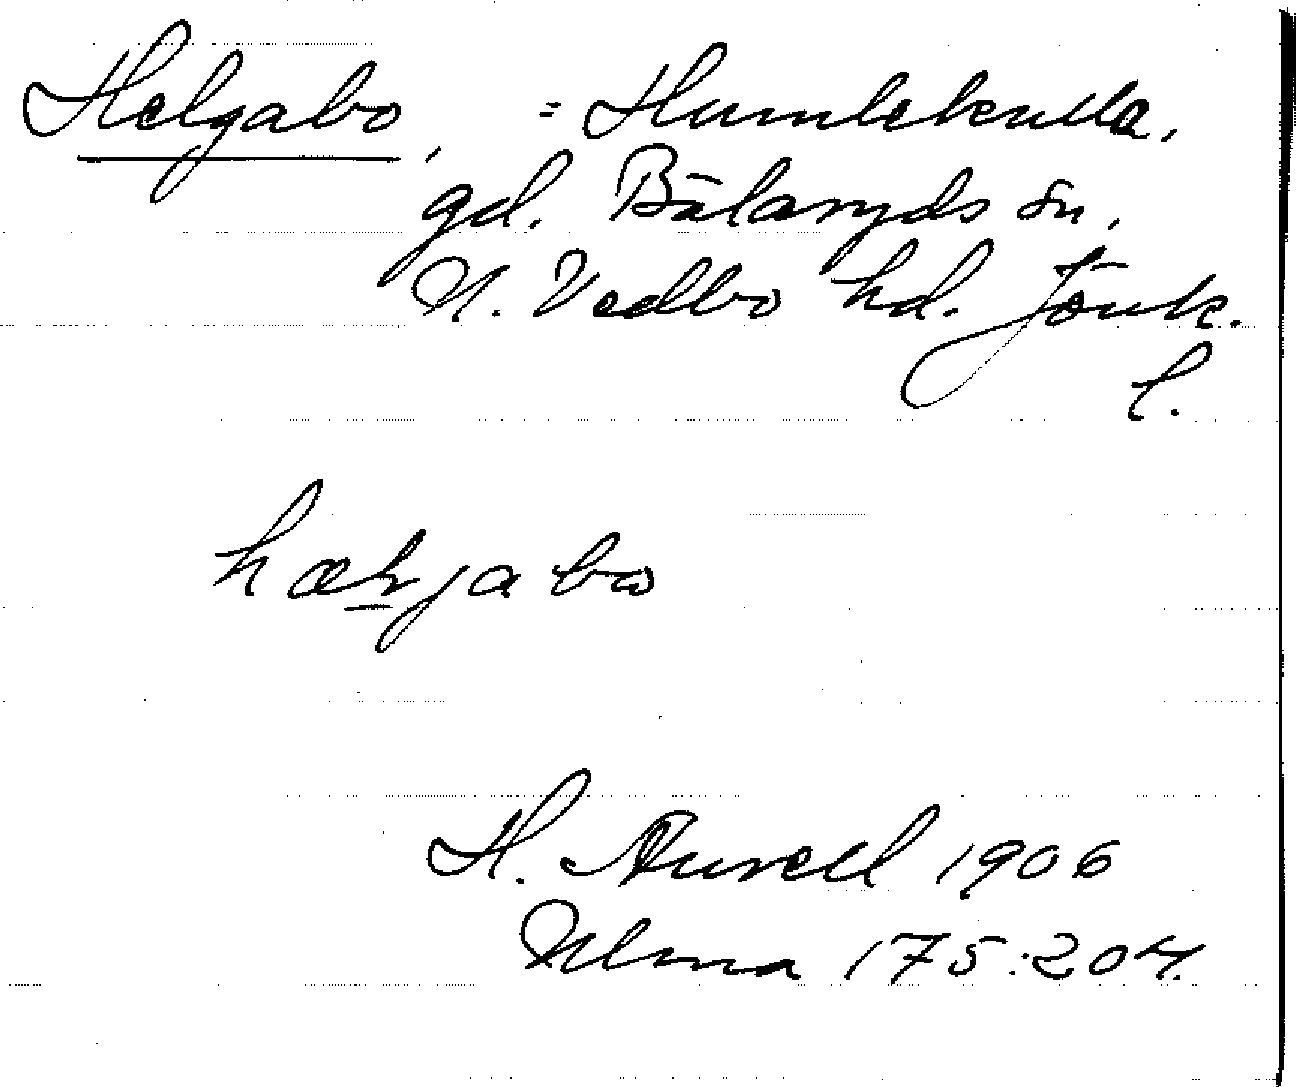 Helgabo, = Humlekulla,
gd. Bälaryds sn,
N. Vedbo hd. Jönk.
l.
H. Aurell 1906
Ulma 175:204.